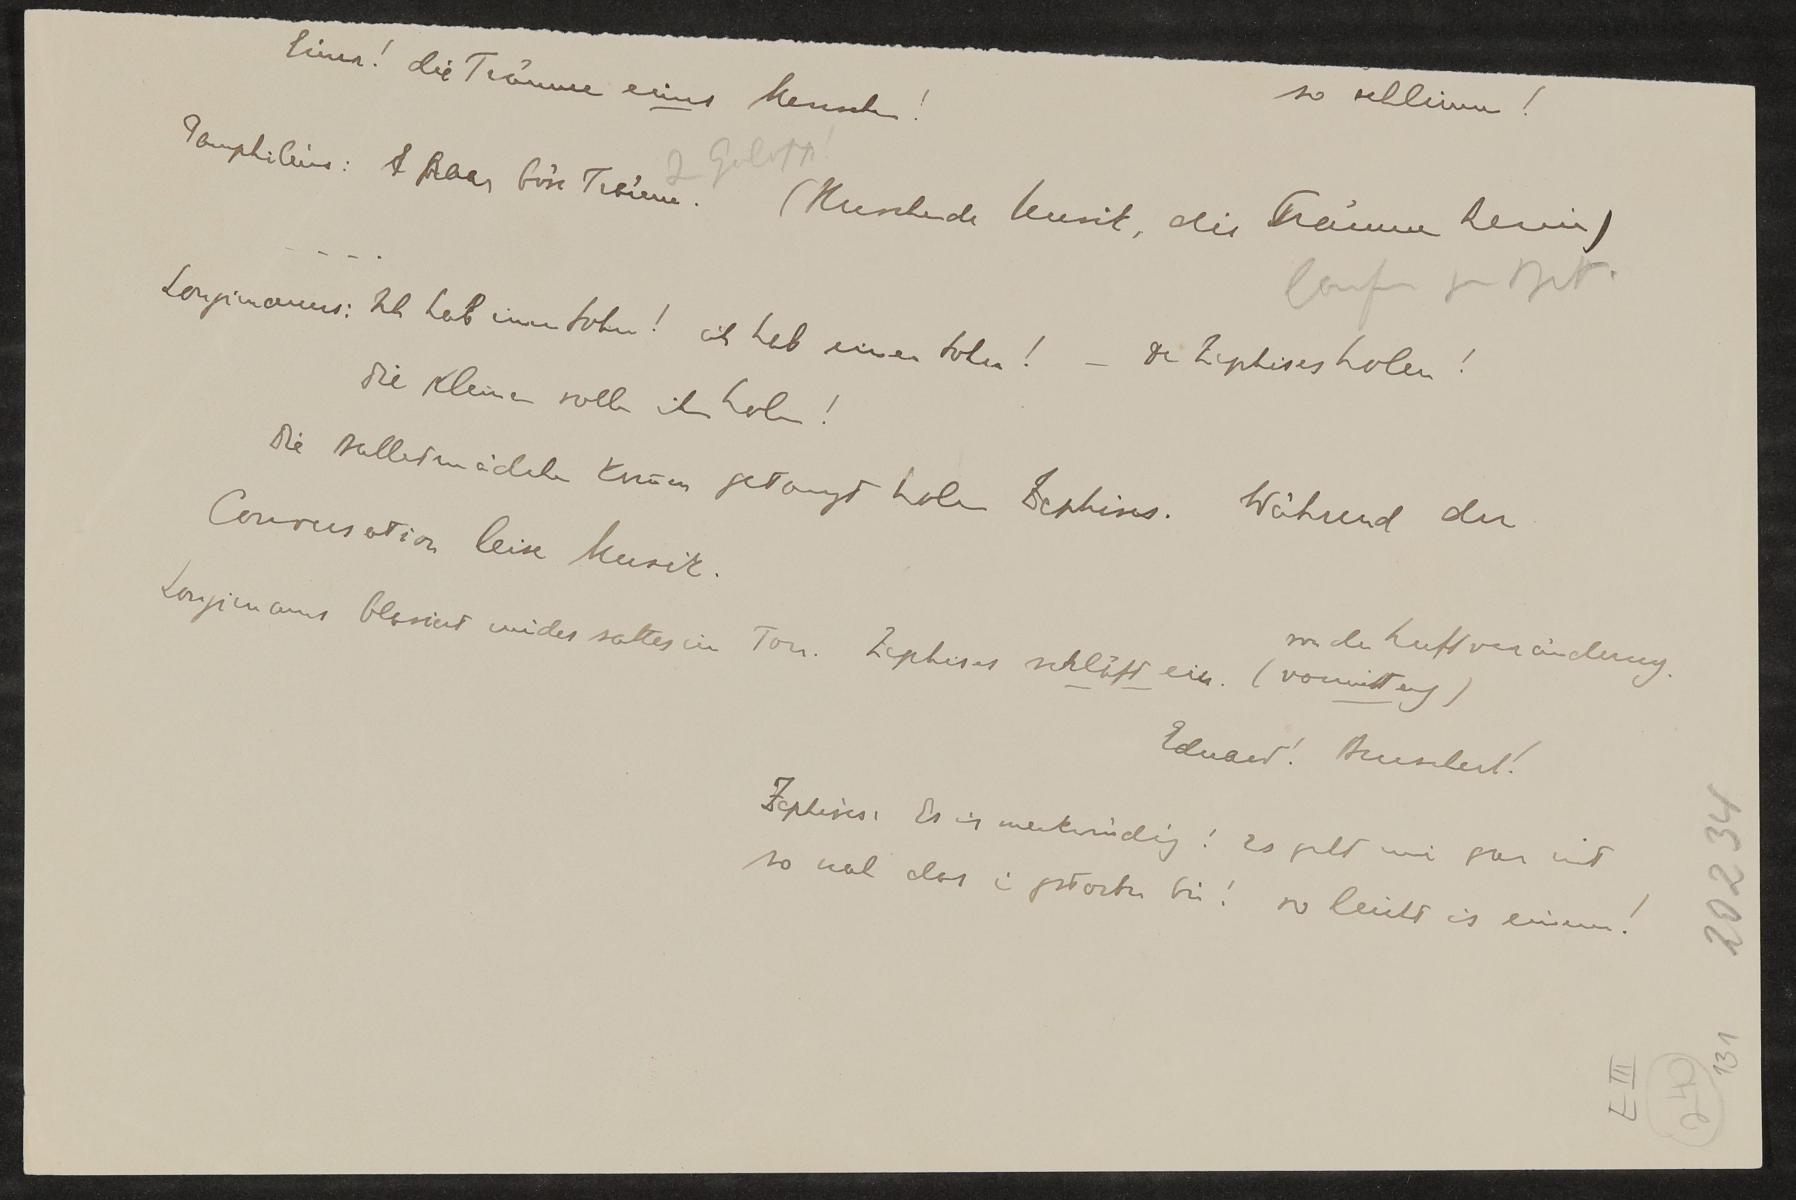 Einer! die Träume eines Menschen! so schlimm!
Pamphilius: A paar böse Träume. 2 Galopp!
(Huschende Musik, die Träume herein)
laufen zu Bett.
– – – .
Longimanus: Ich hab einen Sohn! ich hab einen Sohn! – Der Zephises holen!
Die Kleinen solln ihn holen!
Die Balletmädeln komen getanzt holen Zephises. Während der
Conversation leise Musik.
Longimanus blasiert müder satter im Ton. Zephises schläft ein. (vormittag)
von der Luftveränderung.
Eduard! Bruscherl!
Zephises: Es is merkwürdig! es geht mir gar nit
so nah das i gstorbn bin! so leicht is einem!
202 34
131
E III